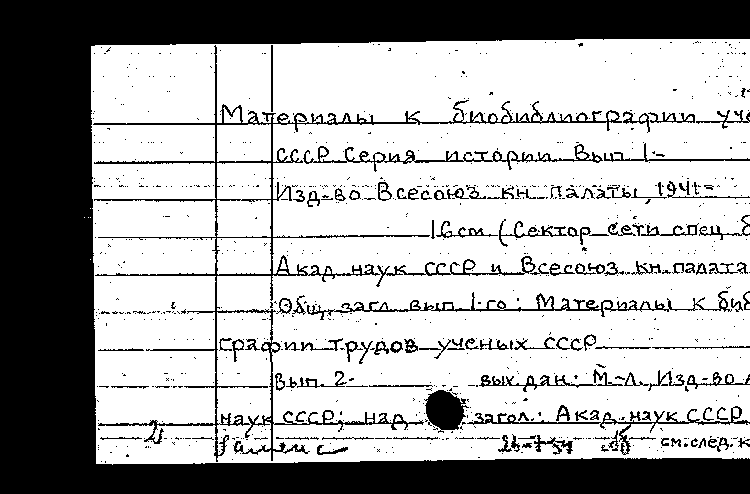 Материалы к биобиблиографии учё
СССР Серия истории Вып 1-
Изд-во Всесоюз кн палаты, 1941=
16см (Сектор сети спец б
Акад наук СССР и Всесоюз. кн. палата
Общ. загл вып 1-го: Материалы к биб
графии трудов ученых СССР
Вып. 2- вых.дан: М.-Л., Изд-во А
наук СССР; над загол.: Акад. наук СССР
2 см.след.к